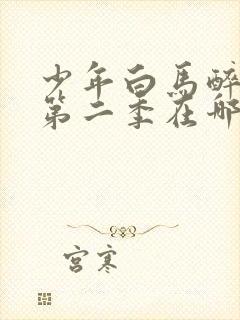 少年白马醉
第二季在哪
宫寒